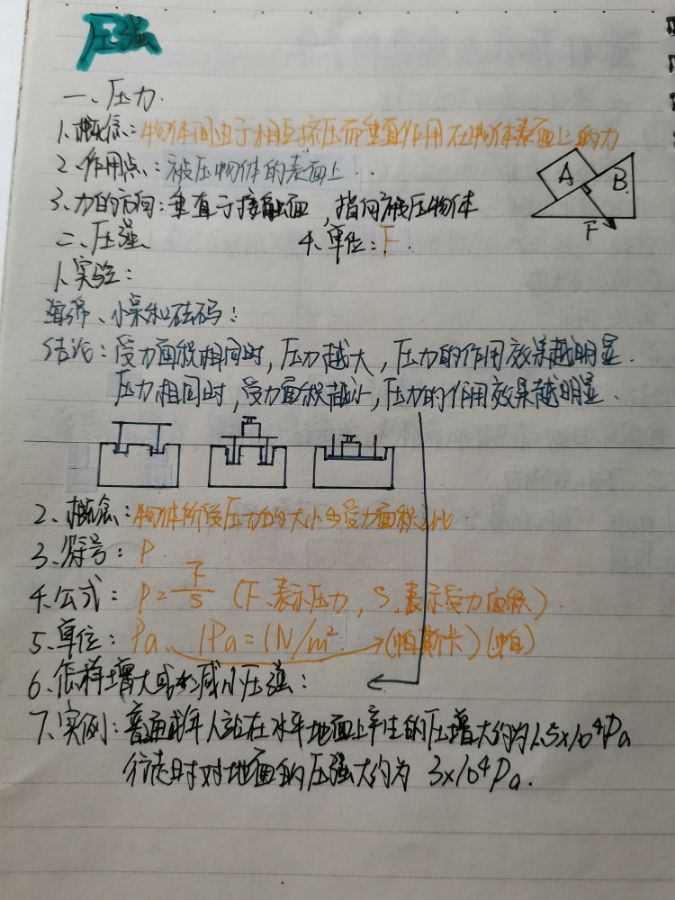 压强
一、压力.
1.概念:物体间由于相互挤压而垂直作用在物体表面上的力
2.作用点:被压物体的表面上..
A B
3.力的方向:垂直于接触面,指向被压物体
F
二、压强 4.单位:F.
1.实验:
海绵、小桌和砝码:
结论:受力面积相同时,压力越大,压力的作用效果越明显.
压力相同时,受力面积越小,压力的作用效果越明显.
2.概念:物体所受压力的大小与受力面积之比
3.符号:P
4.公式:P=F/S (F.表示压力,S.表示受力面积).
5.单位:Pa. 1Pa=1N/m². (帕斯卡)(帕)
6.怎样增大或减小压强:
7.实例:普通成年人站在水平地面上产生的压增大约为1.5×10⁴Pa
行走时对地面的压强大约为 3×10⁴Pa.